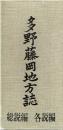 多野藤岡地方誌
総説編
各説編